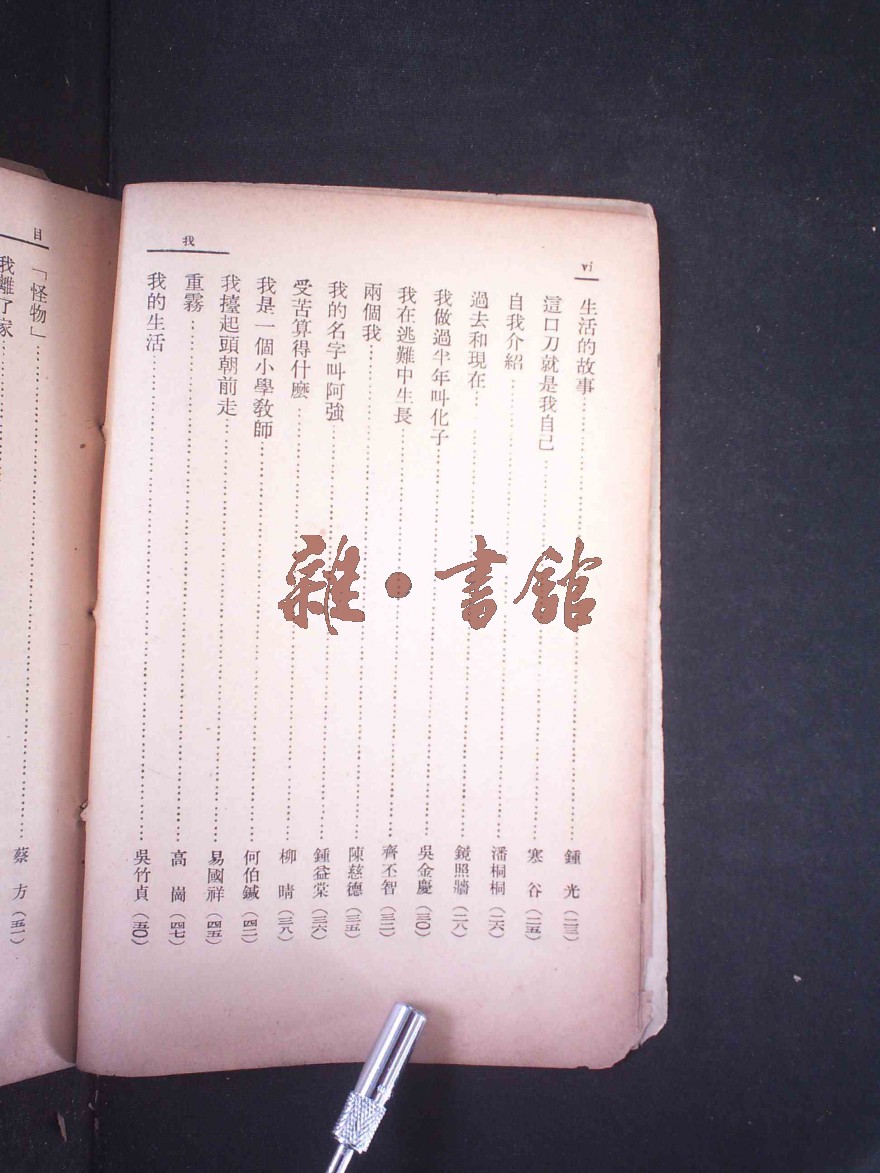 vi
我
生活的故事…………鍾　光（二三）
這口刀就是我自己…………寒　谷（二五）
自我介紹…………潘桐桐（二六）
過去和現在…………鏡照牆（二八）
我做過半年叫化子…………吳金慶（三〇）
我在逃難中生長…………齊丕智（三二）
兩個我…………陳慈德（三五）
我的名字叫阿強…………鍾益棠（三六）
受苦算得什麼…………柳　晴（三八）
我是一個小學教師…………何伯鍼（四二）
我擡起頭朝前走…………易國祥（四五）
重霧…………高　崗（四七）
我的生活…………吳竹貞（五〇）
目
「怪物」…………蔡　方（五一）
我離了家…………
雜•書館